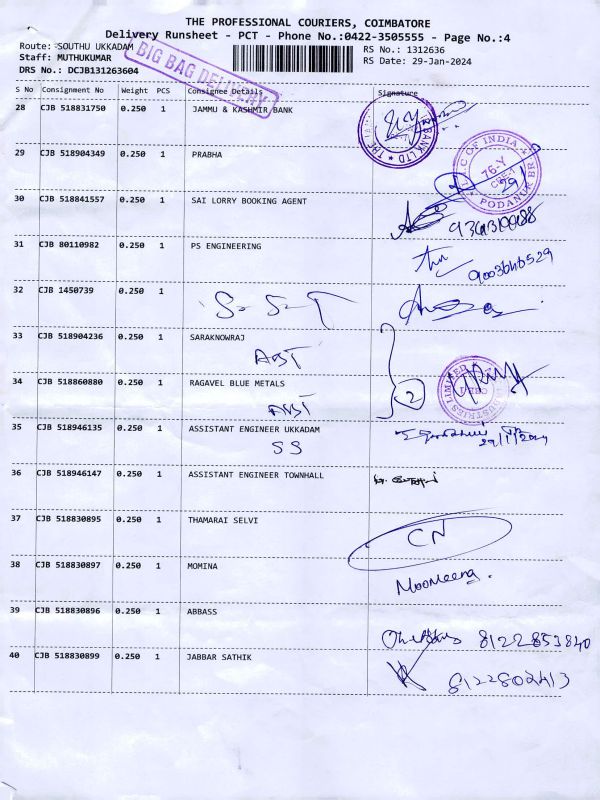 THE PROFESSIONAL COURIERS, COIMBATORE
Delivery Runsheet - PCT - Phone No.:0422-3505555 - Page No.:4
Route: SOUTHU UKKADAM RS No.: 1312636
Staff: MUTHUKUMAR RS Date: 29-Jan-2024
DRS No.: DCJB131263604
BIG BAG DELIVERY
S No Consignment No Weight PCS Consignee Details Signature
28 CJB 518831750 0.250 1 JAMMU & KASHMIR BANK
BANK LTD
29 CJB 518904349 0.250 1 PRABHA
OF INDIA
76-Y
CBE-1
PODANUR BR
29/
30 CJB 518841557 0.250 1 SAI LORRY BOOKING AGENT
31 CJB 80110982 0.250 1 PS ENGINEERING
32 CJB 1450739 0.250 1
33 CJB 518904236 0.250 1 SARAKNOWRAJ
34 CJB 518860880 0.250 1 RAGAVEL BLUE METALS
2
LIMITED
35 CJB 518946135 0.250 1 ASSISTANT ENGINEER UKKADAM
SS
36 CJB 518946147 0.250 1 ASSISTANT ENGINEER TOWNHALL
37 CJB 518830895 0.250 1 THAMARAI SELVI
CN
38 CJB 518830897 0.250 1 MOMINA
Moomeena.
39 CJB 518830896 0.250 1 ABBASS
8122853840
40 CJB 518830899 0.250 1 JABBAR SATHIK
8122802413